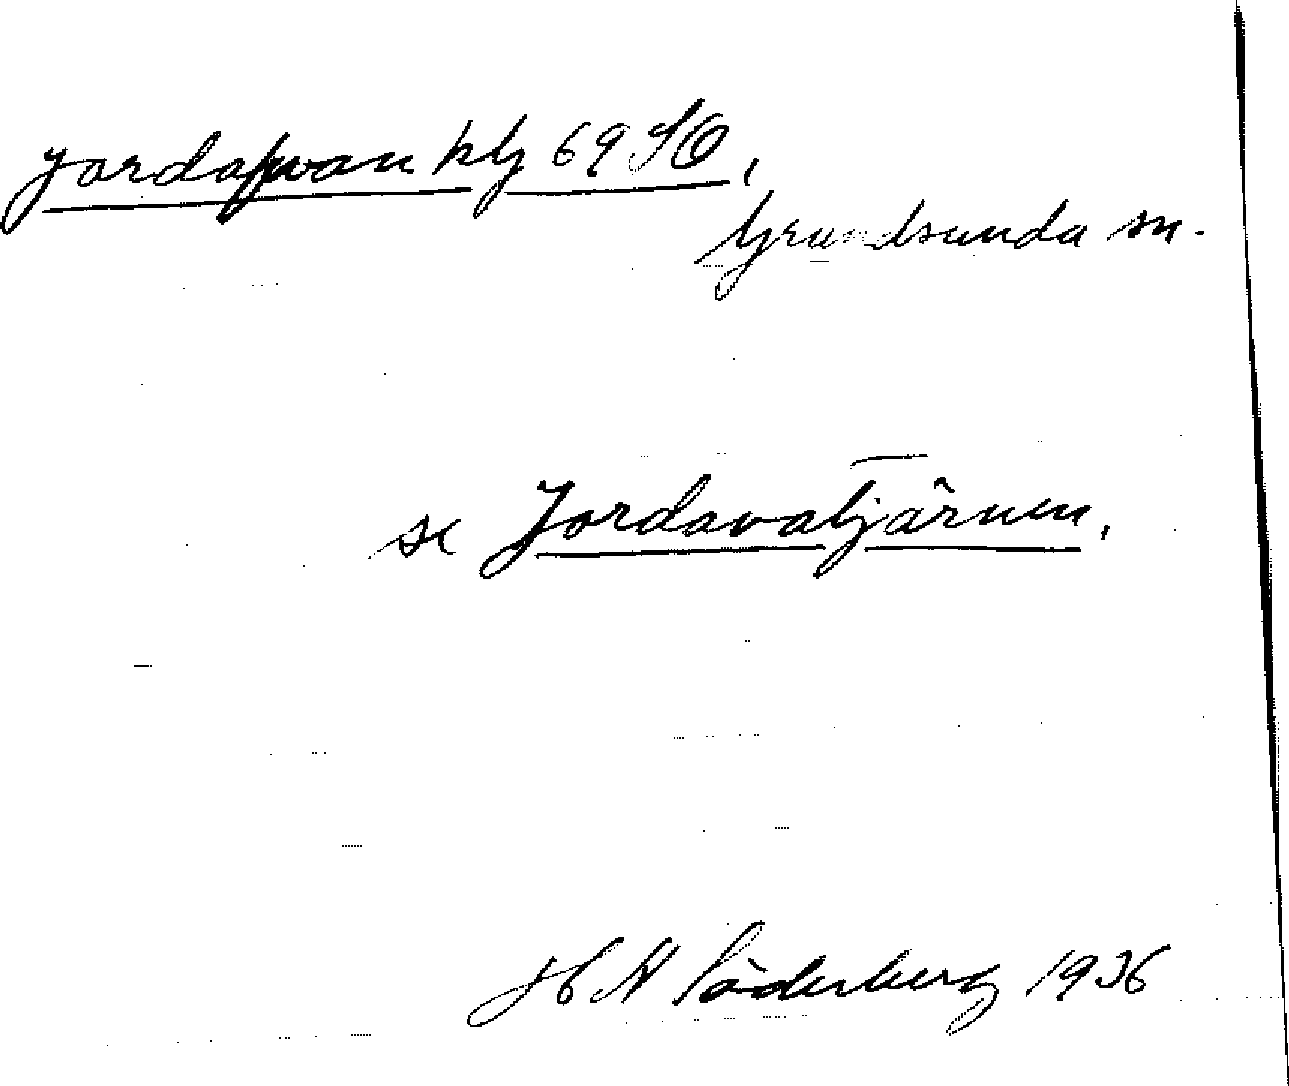 Jordafwan hlj 69 SO,
Grundsunda sn.
se Jordavatjärnen.
H N Söderberg 1936